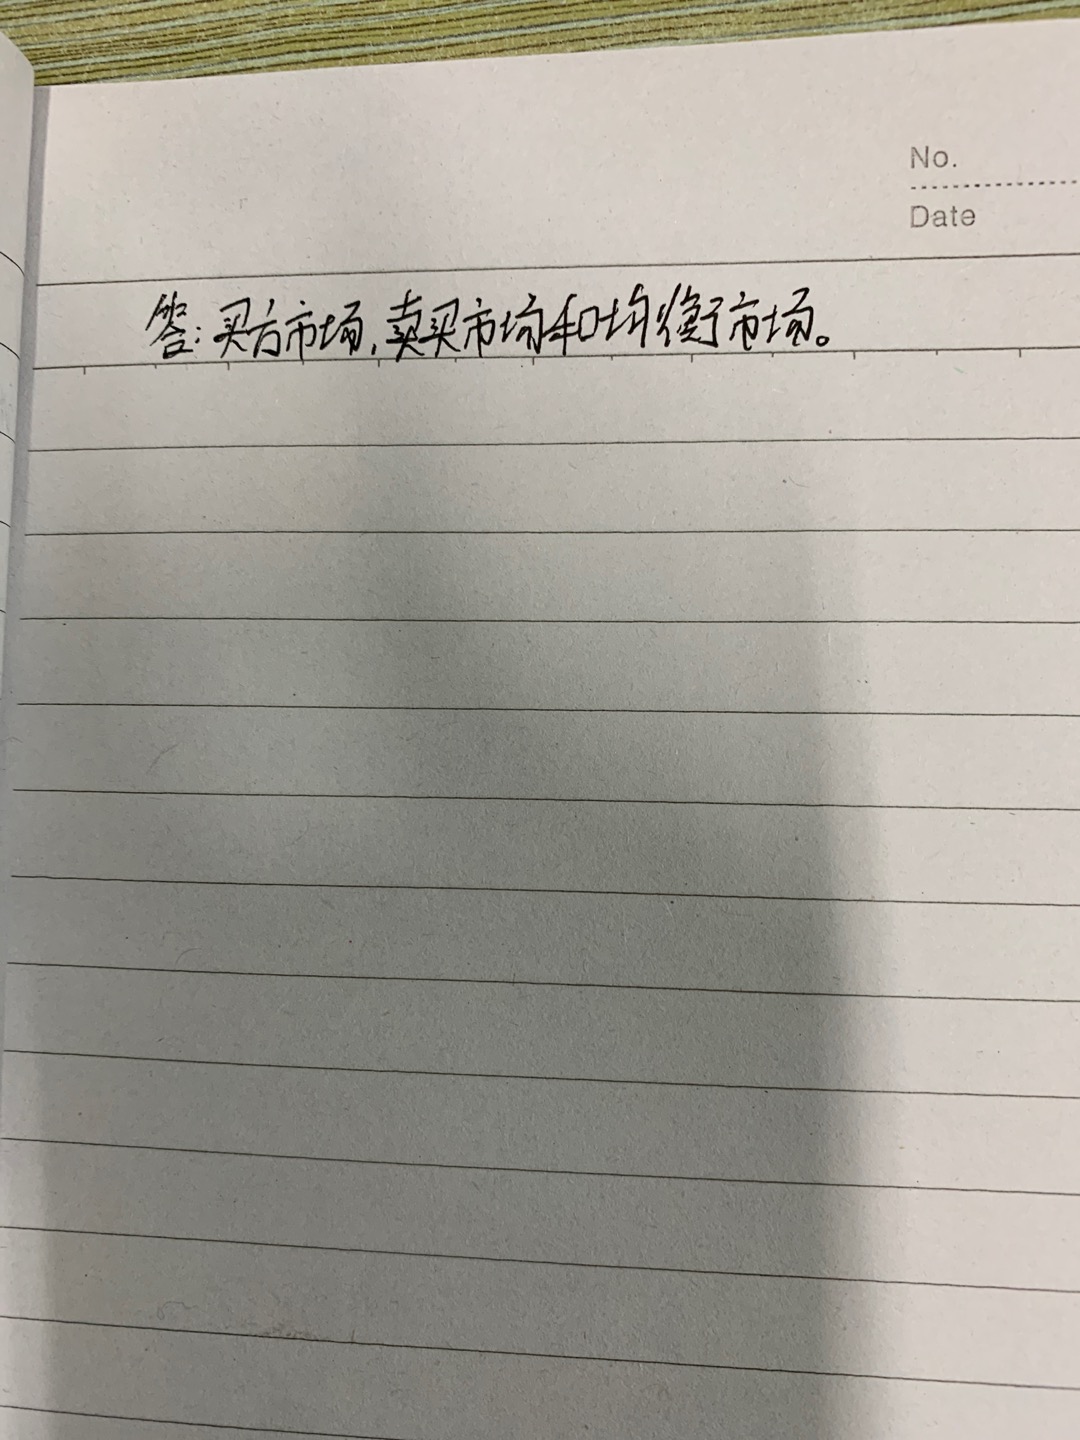 No.
Date
答:买方市场,卖买市场和均衡市场。